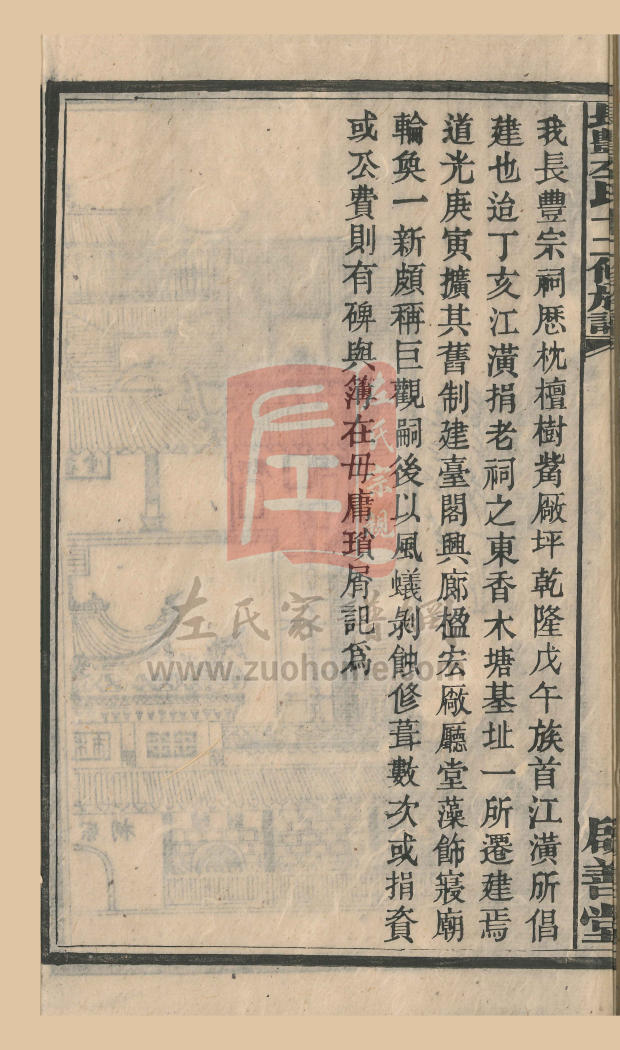 我長豐宗祠歷枕檀樹觜厰坪乾隆戊午族首江潢所倡
建也迨丁亥江潢捐老祠之東香木塘基址一所遷建焉
道光庚寅擴其舊制建臺閣興廊楹宏厰廳堂藻飾寢廟
輪奐一新頗稱巨觀嗣後以風蟻剝蝕修葺數次或捐資
或公費則有碑與簿在毋庸瑣屑記爲
啟善堂
左氏家
www.zuohome.com